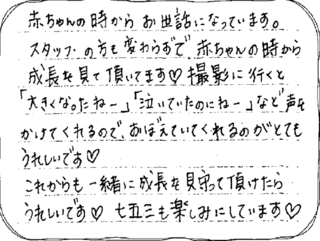 赤ちゃんの時から お世話になっています。
スタッフの方も変わらずで、赤ちゃんの時から
成長を見て頂いてます♡ 撮影に行くと
「大きくなったねー」「泣いていたのにねー」など声を
かけてくれるので、おぼえていてくれるのがとても
うれしいです♡
これからも一緒に成長を見守って頂けたら
うれしいです♡ 七五三も楽しみにしています♡